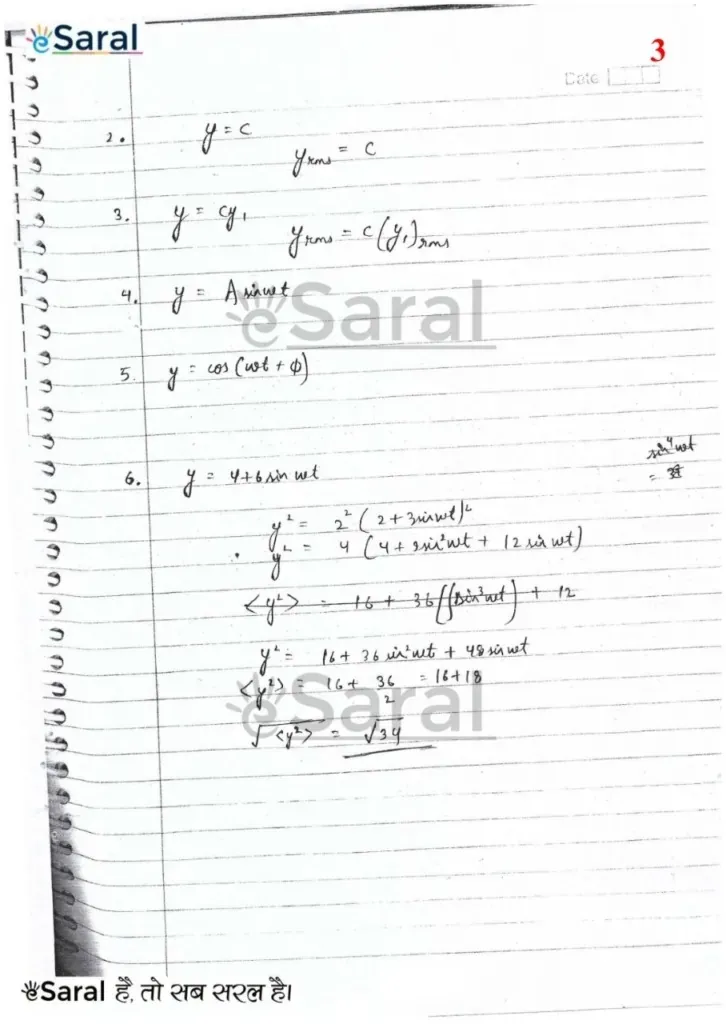 eSaral
3
Date
2. y = c
y rms = c
3. y = cy₁
y rms = c (y₁) rms
4. y = A sin wt
eSaral
5. y = cos (wt + φ)
sin⁴ wt
6. y = 4+6 sin wt
=
y² = 2² (2 + 3 sin wt)²
y² = 4 (4 + 9 sin² wt + 12 sin wt)
<y²> = 16 + 36 [(sin³ wt) + 12
y² = 16 + 36 sin² wt + 48 sin wt
<y²> = 16 + 36/2 = 16+18
eSaral
√<y²> = √34
eSaral है, तो सब सरल है।